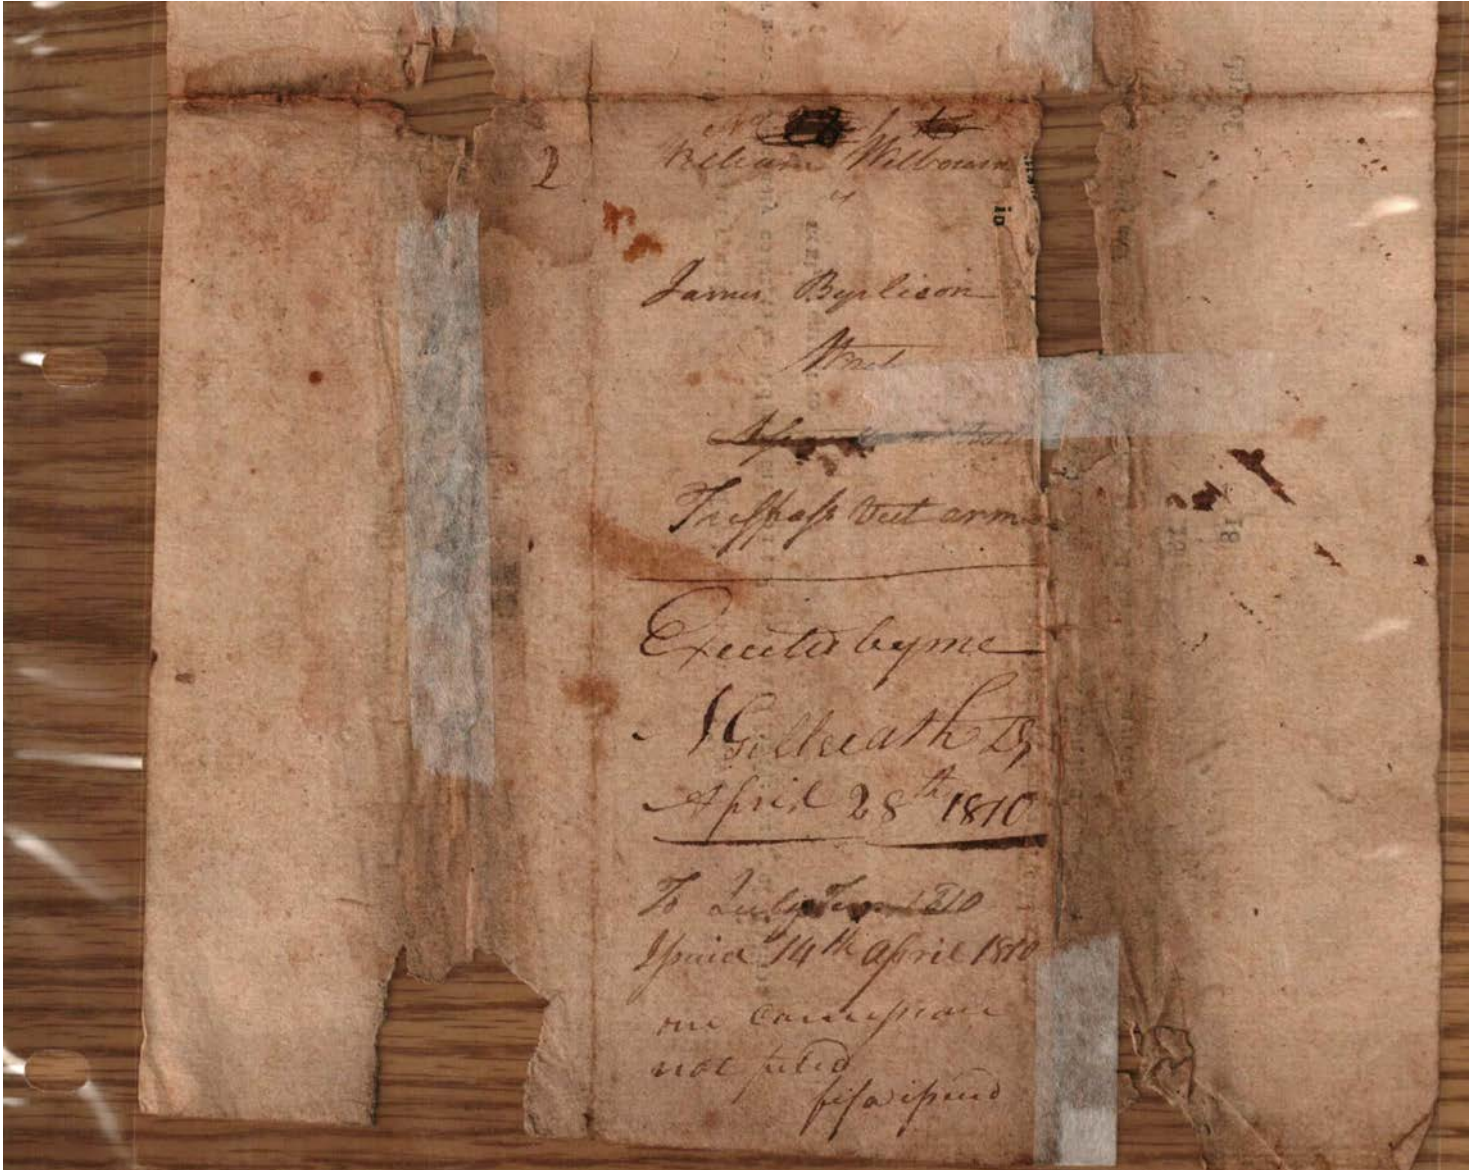 No
2
William Wilbourn
vs
James Byrlison
Writ
Trespass Viet armis
Executed by me
J Gilbreath DS
April 28th 1810
To July Term 1810
Issued 14th April 1810
one
not filed
fifa issued